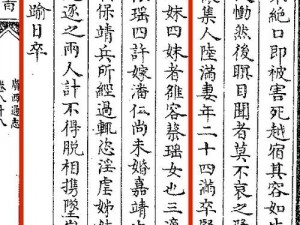 絕口即被害死越宿其容如
慟然後瞑目聞者莫不哀之隆
集人陸滿妻年二十四滿卒
妹四妹者雒容蔡瑤女也三適
瑤四許嫁潘仁尚未婚嘉靖
保靖兵所經過輒恣淫虐姊
逐之兩人計不得脫相攜墜
踰日卒
廣西通志
卷八十八